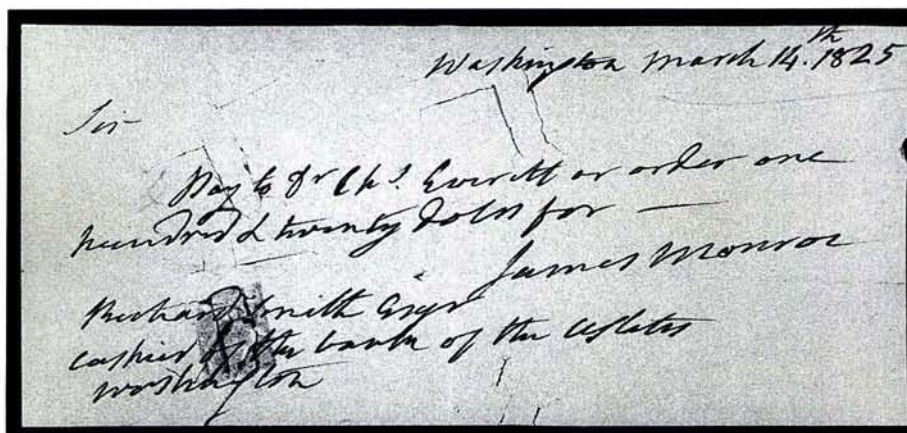 Washington March 14.th 1825
Sir
Pay to Dr Chs. Everett or order one
hundred & twenty dolrs for —
James Monroe
Richard Smith Esqr
cashier of the bank of the UStates
Washington